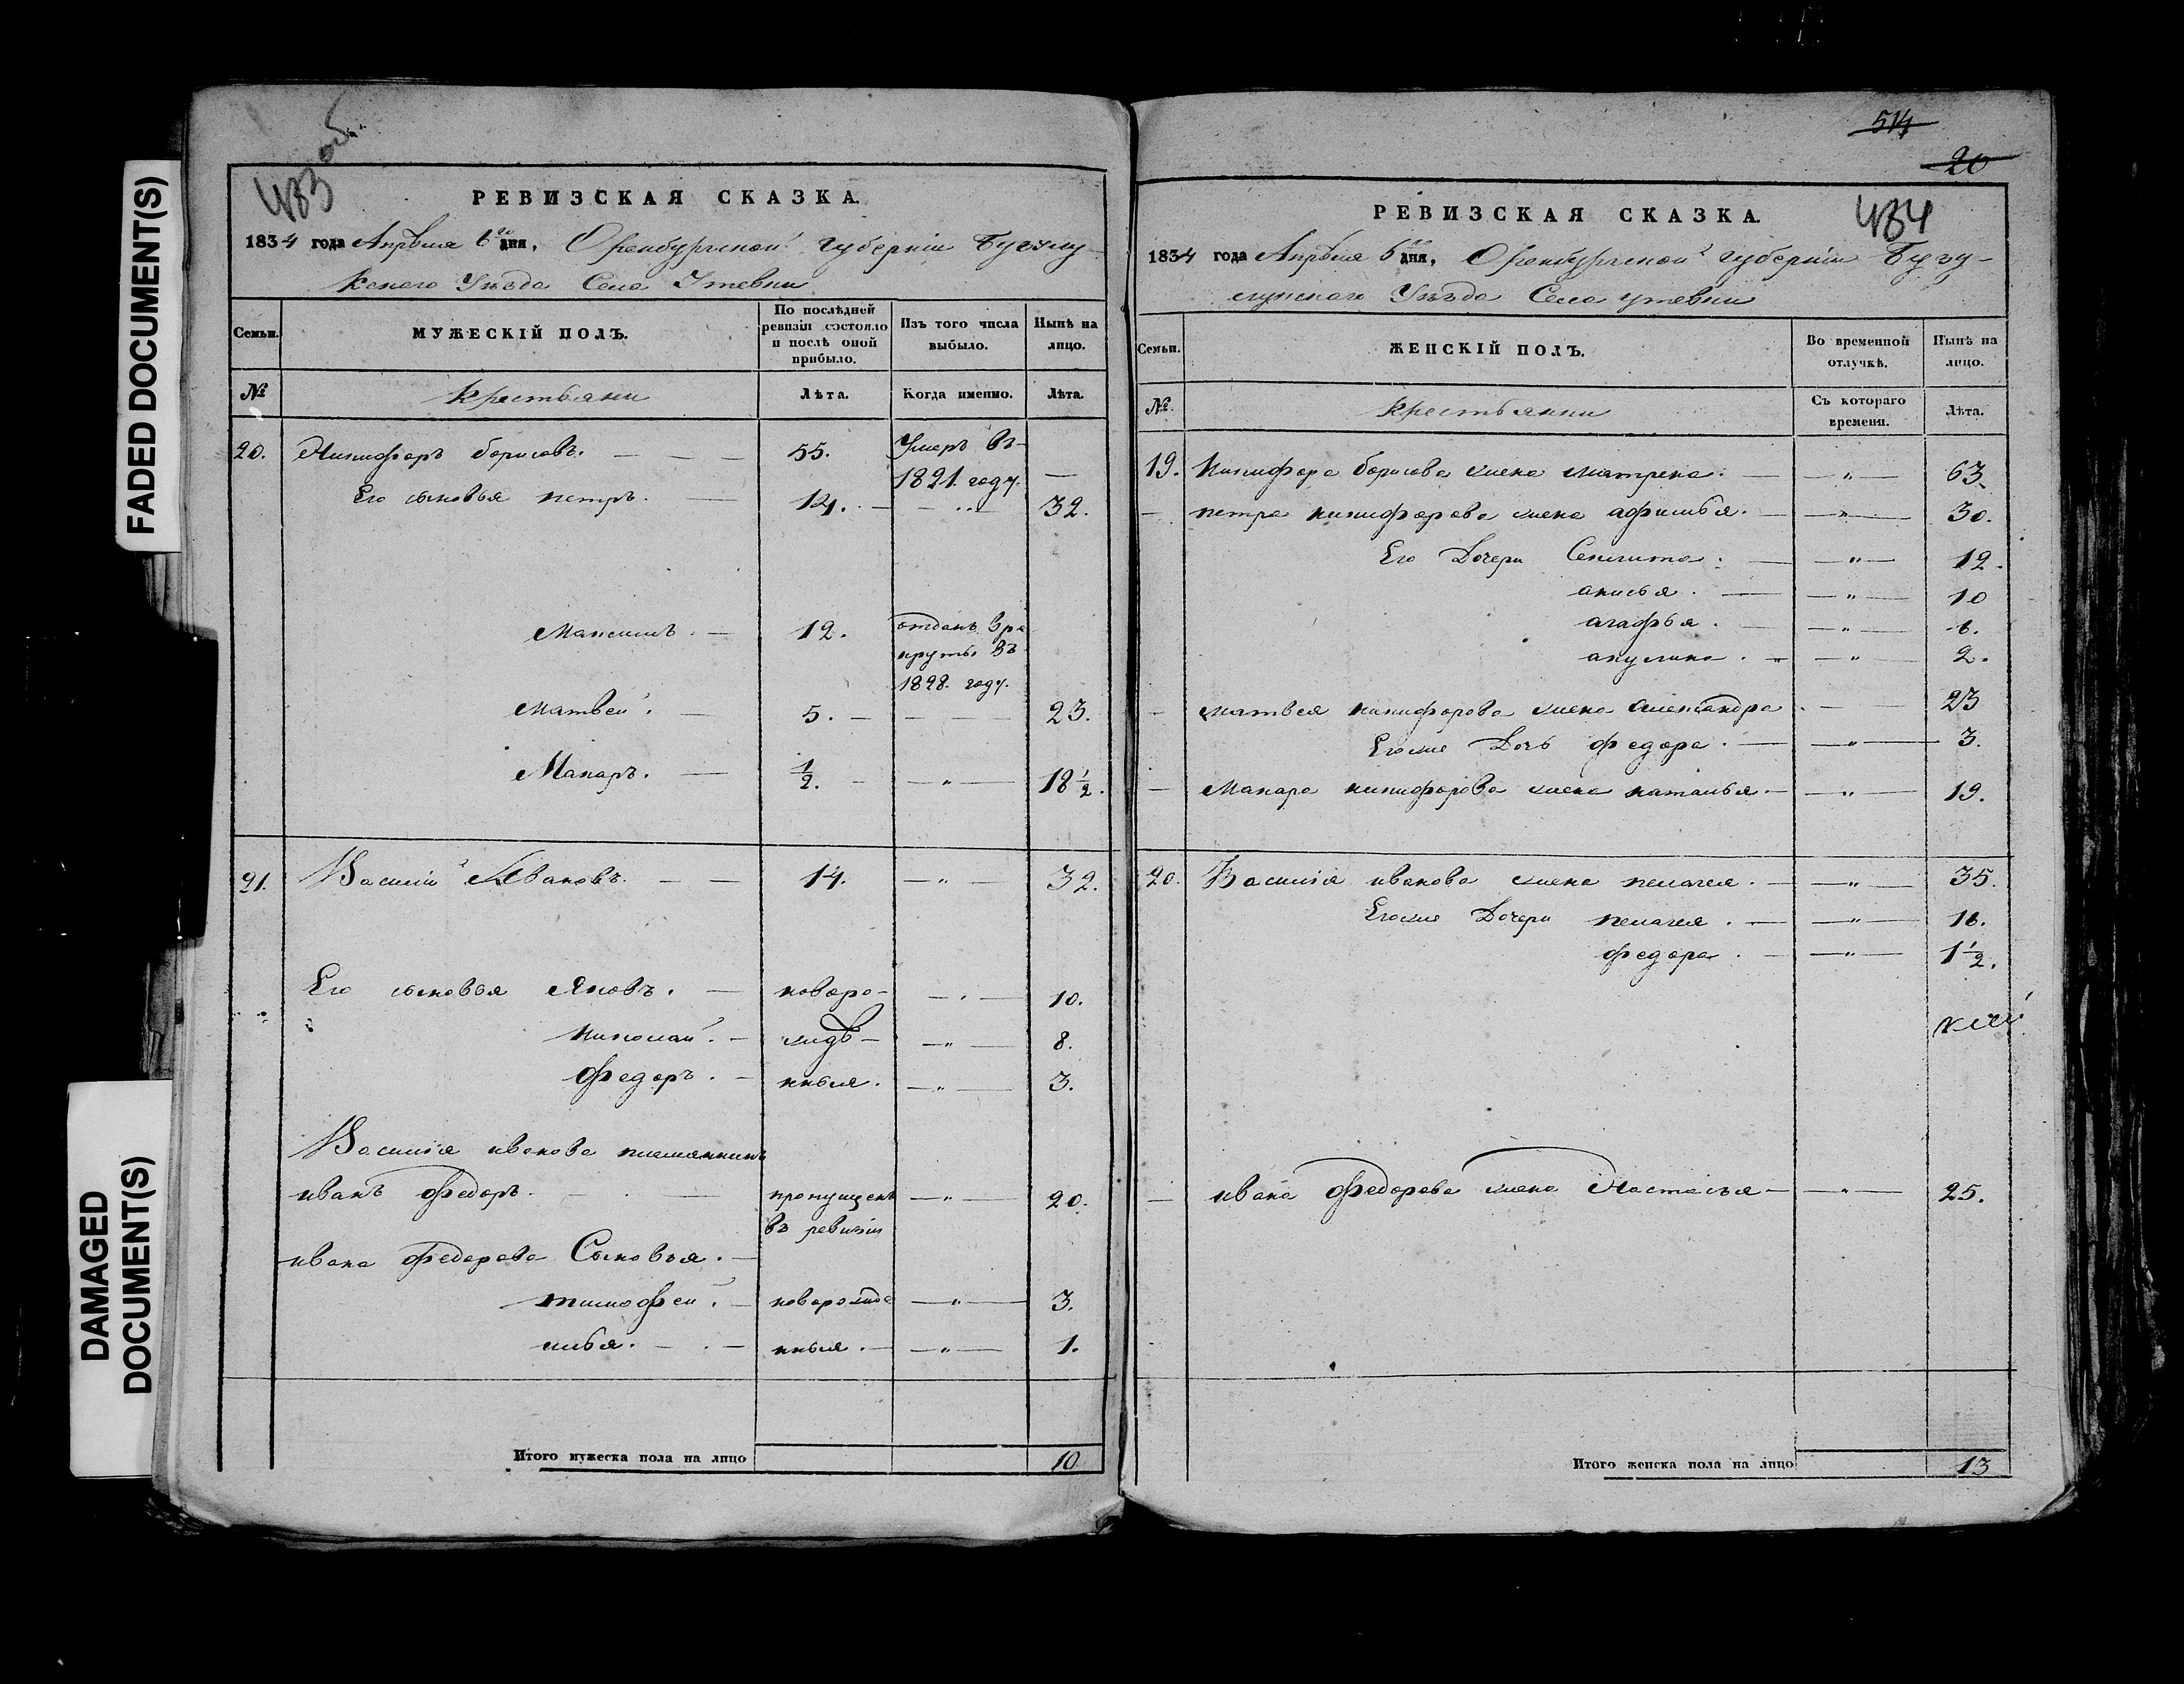 FADED DOCUMENT(S)
DAMAGED
DOCUMENT(S)
483 об.
РЕВИЗСКАЯ СКАЗКА.
1834 года Апрѣля 6го дня, Оренбургской губерніи Бугулу
кскаго Уѣзда Села Утевки
Семьи. МУЖЕСКІЙ ПОЛЪ. По послѣдней ревизіи состояло и послѣ оной прибыло. Изъ того числа выбыло. Нынѣ на лицо.
№ крестьяни Лѣта. Когда именно. Лѣта.
20. Никифоръ борисовъ. — — — 55. Умеръ въ 1821. году. —
Его сыновья петръ. — 14. — — „ — 32.
Максимъ. — 12. отданъ в ре круты въ 1828. году.
Матвей. — 5. — — — 23.
Макаръ. — 1/2. — — „ — 18 1/2.
21. Василій Ивановъ. — — 14. — „ — 32.
Его сыновья Яковъ. — новоро- — „ — 10.
Николай. — жде- — „ — 8.
Федоръ. — нныя. — „ — 3.
Василія иванова племянникъ
иванъ федоръ. — — пропущенъ — „ — 20.
въ ревизіи
ивана федорова Сыновья. —
тимофей. — новорожде — „ — 3.
илья. — — нныя. — — „ — 1.
Итого мужеска пола на лицо 10
514
20
484
РЕВИЗСКАЯ СКАЗКА.
1834 года Апрѣля 6го дня, Оренбургской губерніи Бугу-
лускаго Уѣзда Села утевки
Семьи. ЖЕНСКІЙ ПОЛЪ. Во временной отлучкѣ. Нынѣ на лицо.
№. крестьянки Съ котораго времени. Лѣта.
19. Никифора борисова жена матрена. — — „ — 63.
— петра никифорова жена афимья. — — „ — 30.
Его Дочери Секлита. — — „ — 12.
анисья. — — „ — 10
агафья. — — „ — 6.
акулина. — — „ — 2.
— матвея никифорова жена александра. — 23
Егоже Дочь федора. — — „ — 3.
— Макара никифорова жена наталья. — — „ — 19.
20. Василія иванова жена пелагея. — — „ — 35.
Егоже Дочери пелагея. — — „ — 16.
федора. — — „ — 1 1/2.
— ивана федорова жена Настасья — — „ — 25.
Итого женска пола на лицо 13